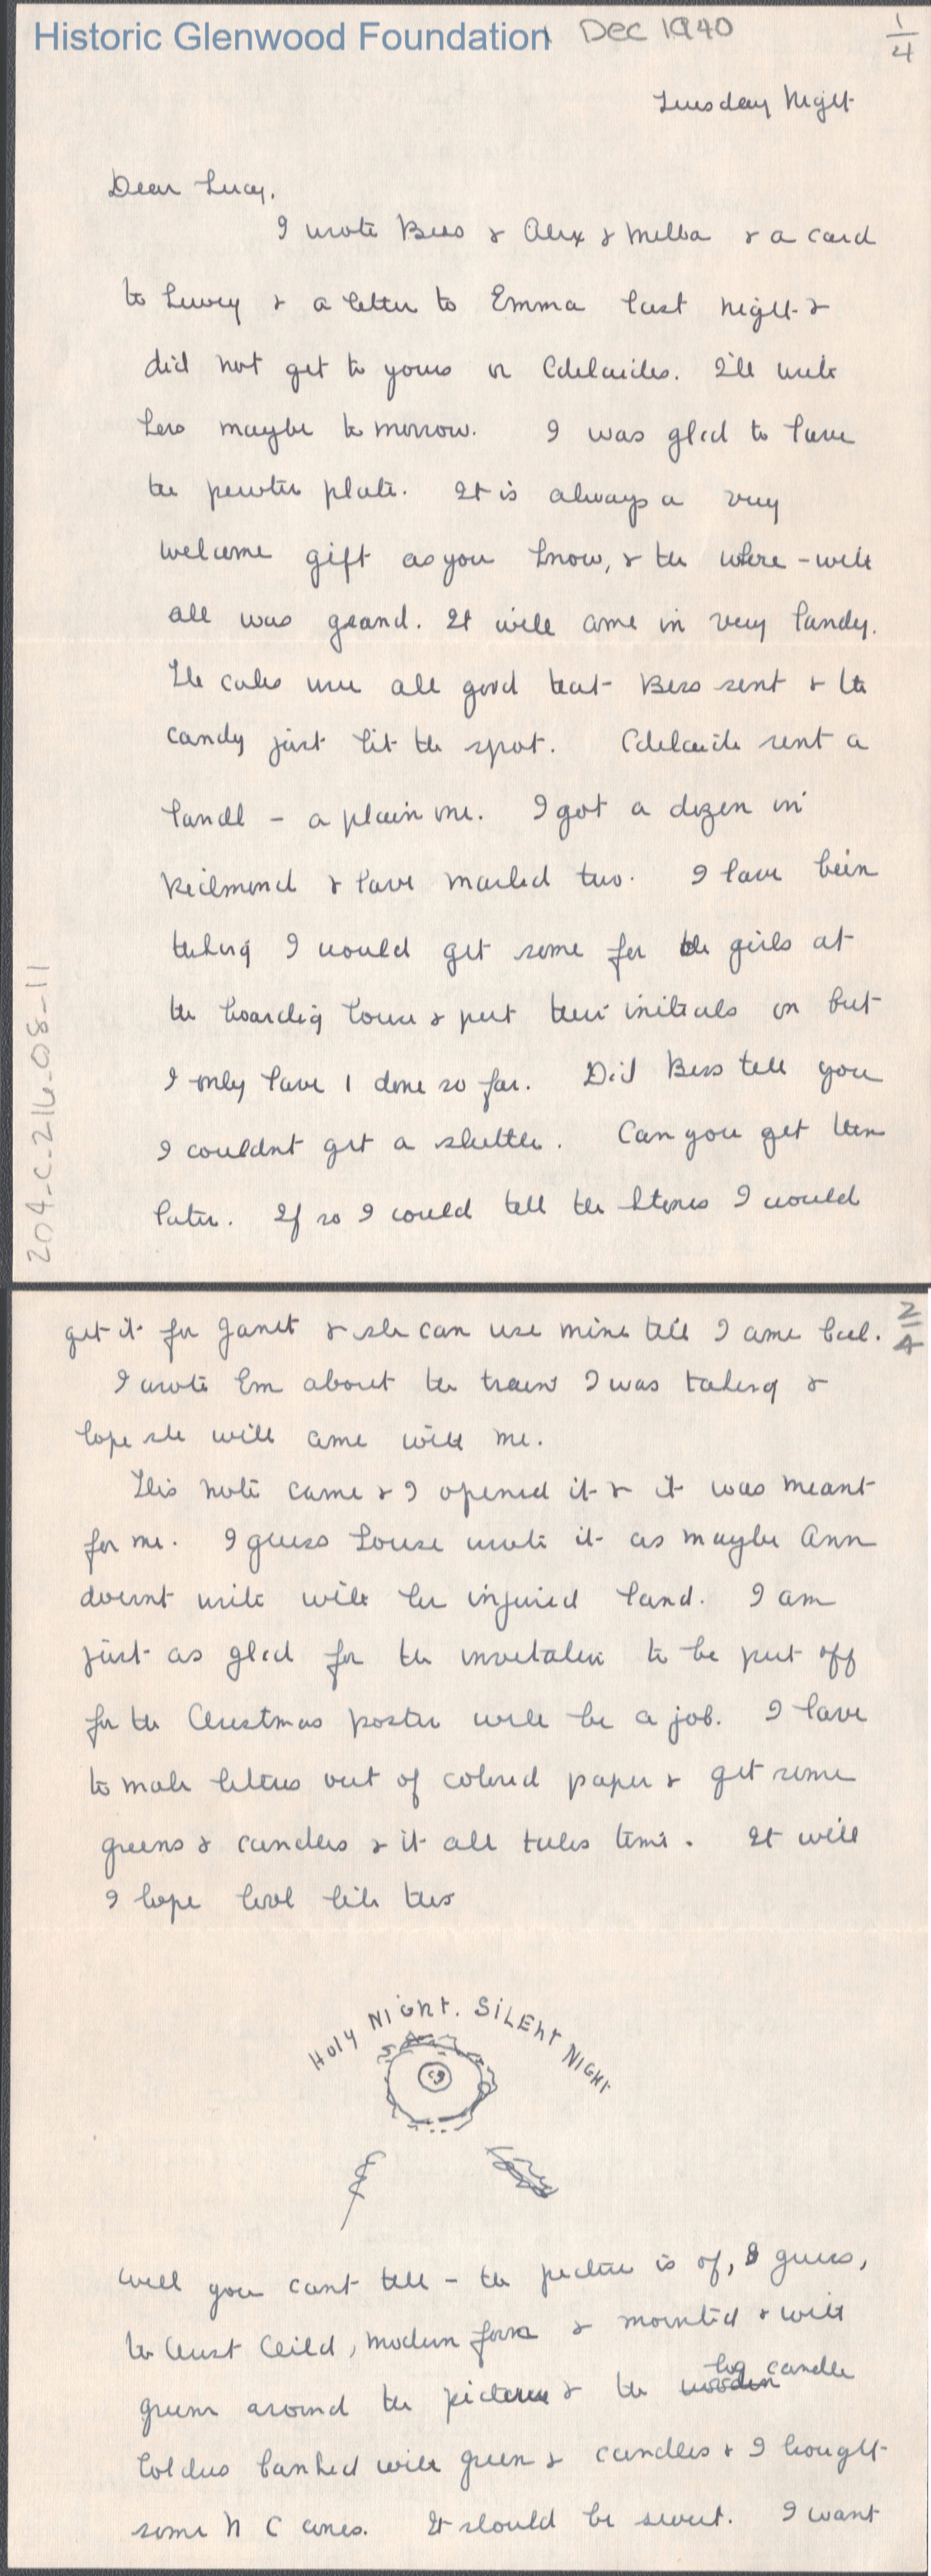 Historic Glenwood Foundation Dec 1940 1/4
Tuesday Night
Dear Lucy,
I wrote Bess & Alex & Melba & a card
to Livvy & a letter to Emma last night &
did not get to yours or Adelaides. I'll write
hers maybe to morrow. I was glad to have
the pewter plate. It is always a very
welcome gift as you know, & the where-with
all was grand. It will come in very handy.
The cakes were all good that Bess sent & the
candy just hit the spot. Adelaide sent a
handk – a plain one. I got a dozen in
Richmond & have marked two. I have been
thinking I would get some for the girls at
the boarding house & put their initials on but
I only have 1 done so far. Did Bess tell you
I couldnt get a shuttle. Can you get them
later. If so I could tell the Stones I would
204-C-216-08-11
get it for Janet & she can use mine till I come back. 2/4
I wrote Em about the train I was taking &
hope she will come with me.
This note came & I opened it & it was meant
for me. I guess Louise wrote it as maybe Ann
doesnt write with her injured hand. I am
just as glad for the invitation to be put off
for the Christmas poster will be a job. I have
to make letters out of colored paper & get some
greens & candles & it all takes time. It will
I hope look like this
Holy Night. Silent Night
Well you cant tell – the picture is of, I guess,
the Christ Child, modern form & mounted & with
green around the picture & the log candle
holders banked with green & candles & I bought
some N C cones. It should be sweet. I want